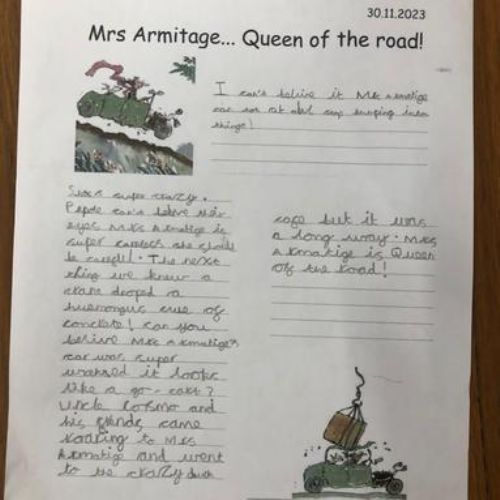 30.11.2023
Mrs Armitage... Queen of the road!
I can't belive it Mrs Armatige
car not at all stop bumping into
things!
She's super crazy.
Pepole can't belive their
eyes Mrs Armatige is
super careless she should
be careful. The next
thing we knew a
crane droped a
huemongus cue of
concrete! Can you
belive Mrs Armatige's
car was super
wrecked it looks
like a go-cart?
Uncle Cosmo and
his friends came
roaring to Mrs
Armatige and went
to the crazy duck
cafe but it was
a long way. Mrs
Armatige is Queen
of the Road!